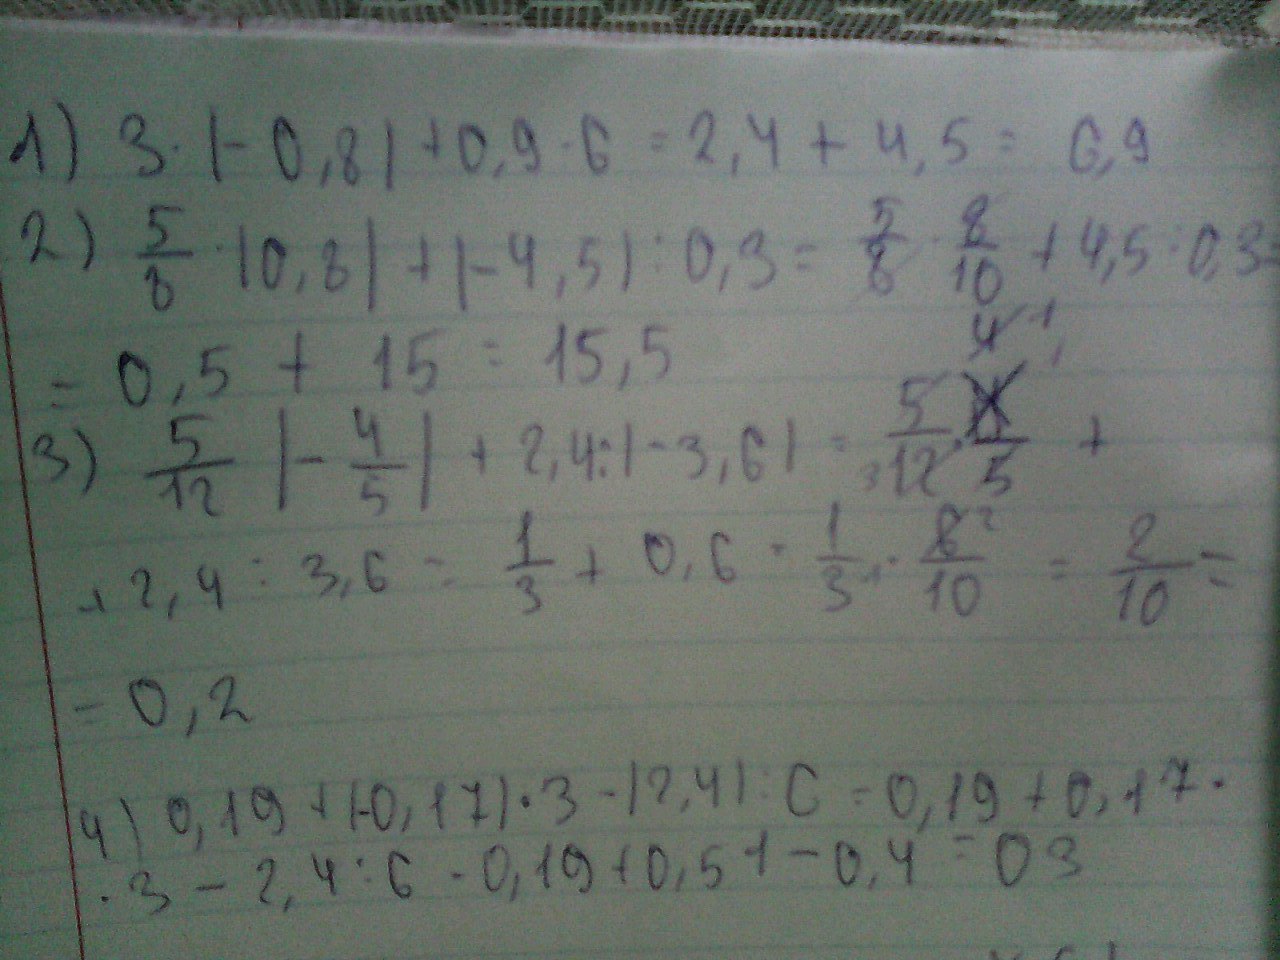 1) 3·|-0,8|+0,9·6=2,4+4,5=6,9
2) 5/8·|0,8|+|-4,5|:0,3=5/8·8/10+4,5:0,3=
=0,5+15=15,5
3) 5/12|-4/5|+2,4:|-3,6|=5/12·4/5+
+2,4:3,6=1/3+0,6=1/3·6/10=2/10=
=0,2
4) 0,19+|-0,17|·3-|2,4|:6=0,19+0,17·
·3-2,4:6=0,19+0,51-0,4=03